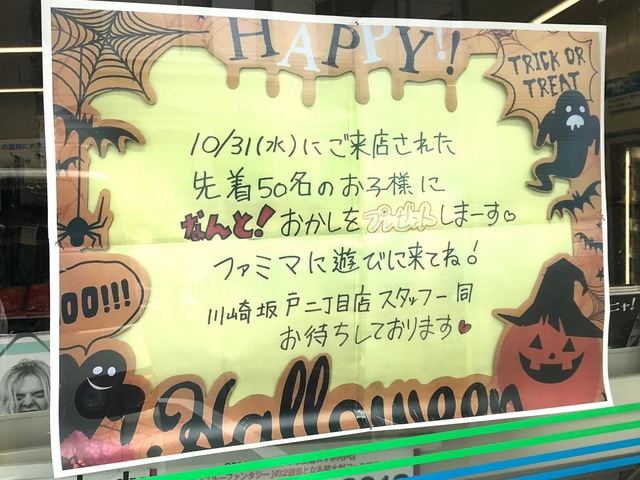 HAPPY!!
TRICK OR
TREAT
10/31(水)にご来店された
先着50名のお子様に
なんと!おかしをプレゼントしまーす♡
ファミマに遊びに来てね!
川崎坂戸二丁目店スタッフ一同
お待ちしております♥
OO!!!
Halloween